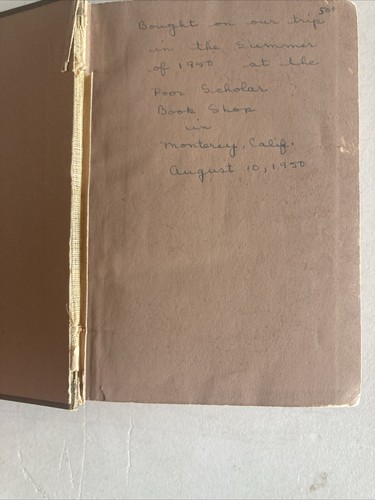 50¢
Bought on our trip
in the Summer
of 1950 at the
Poor Scholar
Book Shop
in
Monterey, Calif.
August 10, 1950